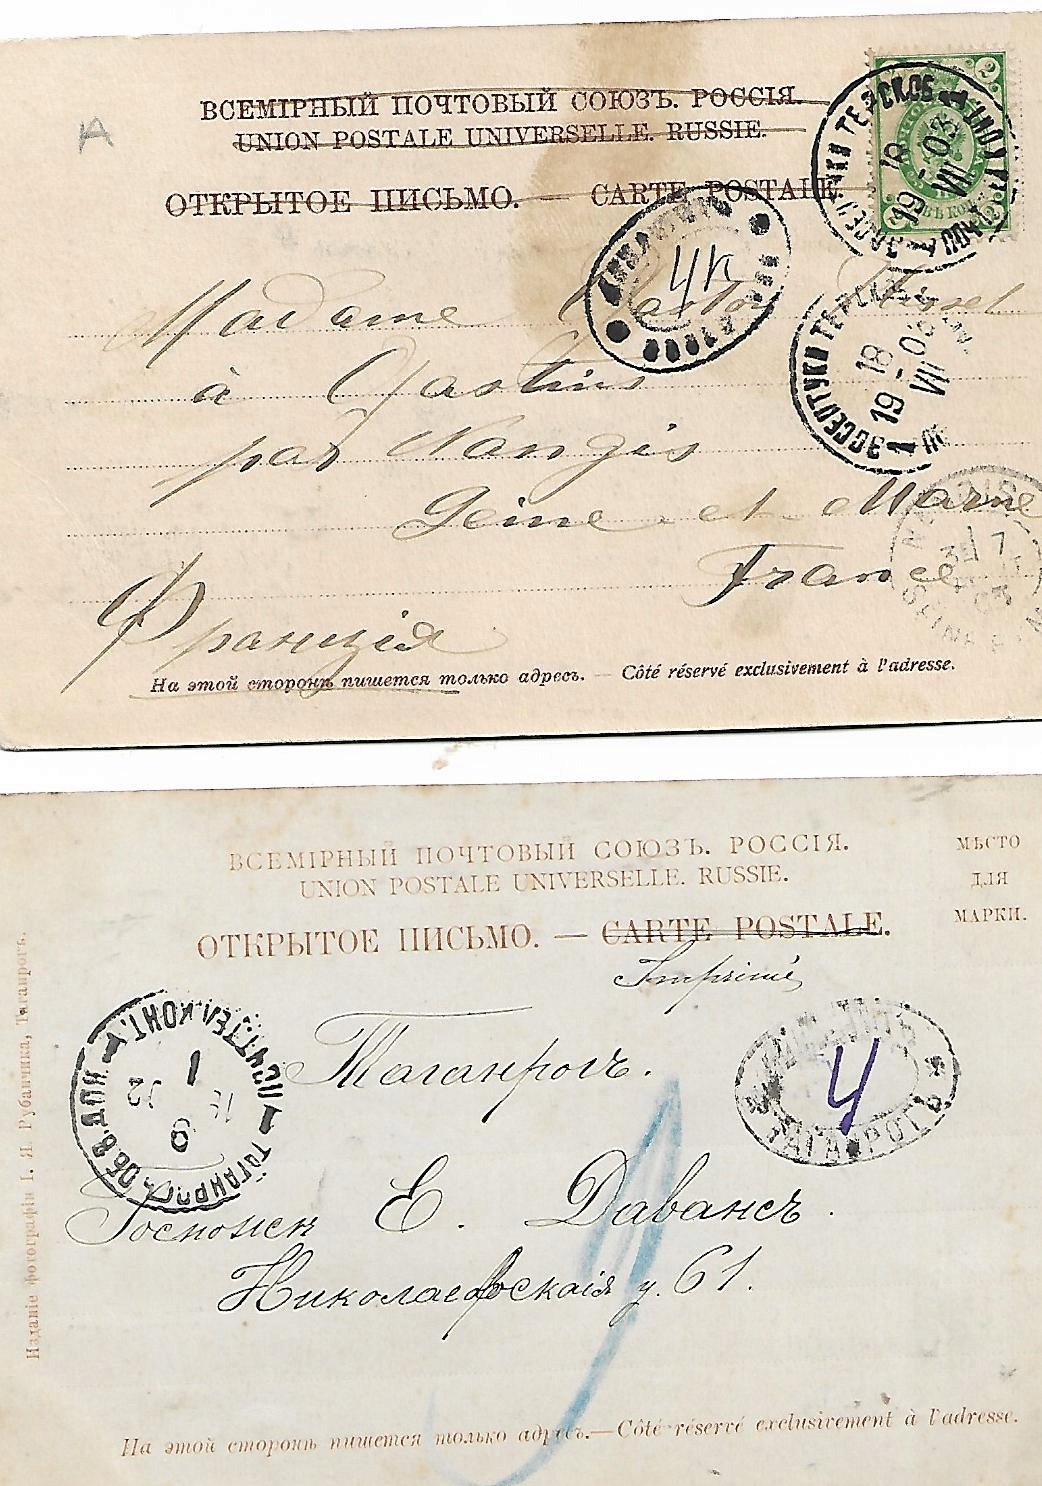 A
ВСЕМІРНЫЙ ПОЧТОВЫЙ СОЮЗЪ. РОССІЯ.
UNION POSTALE UNIVERSELLE. RUSSIE.
ОТКРЫТОЕ ПИСЬМО. — CARTE POSTALE.
2
4к
ЕССЕНТУКИ ТЕРСК. ОБ.
18
19-03
VII
ЕССЕНТУКИ ТЕРСК.
18
19-03
VII
1
Madame Gaston
à Gastins
par Nangis
Seine et Marne
France
Франція
NANGIS
На этой сторонѣ пишется только адресъ. — Côté réservé exclusivement à l'adresse.
ВСЕМІРНЫЙ ПОЧТОВЫЙ СОЮЗЪ. РОССІЯ.
UNION POSTALE UNIVERSELLE. RUSSIE.
МѢСТО
ДЛЯ
МАРКИ.
ОТКРЫТОЕ ПИСЬМО. — CARTE POSTALE.
Imprimé
Изданіе фотографіи І. Я. Рубанчика, Таганрогъ.
ТАГАНРОГЪ ОБ. В. ДОН.
ПОЧТ. ТЕЛ. КОНТ.
4
ТАГАНРОГЪ
Таганрогъ.
Госпожѣ Е. Давансъ.
Николаевская у. 61.
На этой сторонѣ пишется только адресъ.—Côté réservé exclusivement à l'adresse.